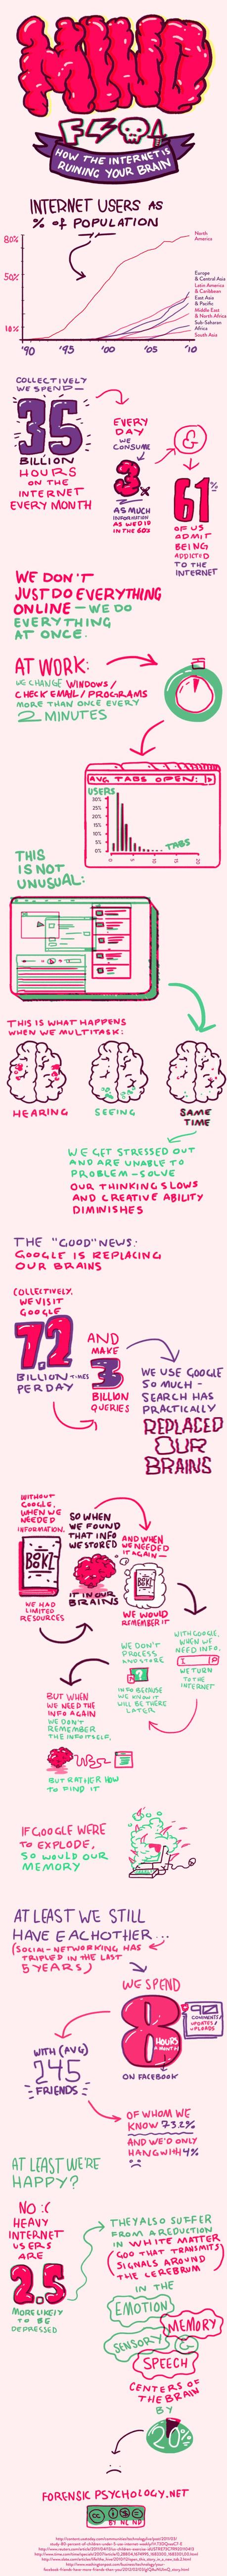 MIND
F
HOW THE INTERNET IS
RUINING YOUR BRAIN
INTERNET USERS AS
% of POPULATION
80%
50%
10%
'90
'95
'00
'05
'10
North
America
Europe
& Central Asia
Latin America
& Caribbean
East Asia
& Pacific
Middle East
& North Africa
Sub-Saharan
Africa
South Asia
COLLECTIVELY
WE SPEND—
35
BILLION
HOURS
ON THE
INTERNET
EVERY MONTH
EVERY
DAY
WE
CONSUME
3x
AS MUCH
INFORMATION
AS WE DID
IN THE 60s
61%
OF US
ADMIT
BEING
ADDICTED
TO THE
INTERNET
WE DON'T
JUST DO EVERYTHING
ONLINE — WE DO
EVERYTHING
AT ONCE.
AT WORK:
WE CHANGE WINDOWS/
CHECK EMAIL/PROGRAMS
MORE THAN ONCE EVERY
2 MINUTES
AVG. TABS OPEN:
USERS
30%
25%
20%
15%
10%
5%
0%
0
5
10
15
20
TABS
THIS
IS NOT
UNUSUAL:
THIS IS WHAT HAPPENS
WHEN WE MULTITASK:
HEARING
SEEING
SAME
TIME
WE GET STRESSED OUT
AND ARE UNABLE TO
PROBLEM-SOLVE
OUR THINKING SLOWS
AND CREATIVE ABILITY
DIMINISHES
THE "GOOD" NEWS:
GOOGLE IS REPLACING
OUR BRAINS
COLLECTIVELY,
WE VISIT
GOOGLE
7.2
BILLION TIMES
PER DAY
AND
MAKE
3
BILLION
QUERIES
WE USE GOOGLE
SO MUCH -
SEARCH HAS
PRACTICALLY
REPLACED
OUR
BRAINS
WITHOUT
GOOGLE,
WHEN WE
NEEDED
INFORMATION,
BOOK!
WE HAD
LIMITED
RESOURCES
SO WHEN
WE FOUND
THAT INFO
WE STORED
IT IN OUR
BRAINS
AND WHEN
WE NEEDED
IT AGAIN—
BOOK!
WE WOULD
REMEMBER IT
WITH GOOGLE,
WHEN WE
NEED INFO,
WE TURN
TO THE
INTERNET
WE DON'T
PROCESS
AND STORE
INFO BECAUSE
WE KNOW IT
WILL BE THERE
LATER
BUT WHEN
WE NEED THE
INFO AGAIN
WE DON'T
REMEMBER
THE INFO ITSELF,
BUT RATHER HOW
TO FIND IT
IF GOOGLE WERE
TO EXPLODE,
SO WOULD OUR
MEMORY
AT LEAST WE STILL
HAVE EACHOTHER...
(SOCIAL-NETWORKING HAS
TRIPLED IN THE LAST
5 YEARS)
WE SPEND
8
HOURS
A MONTH
ON FACEBOOK
90
COMMENTS/
UPDATES/
UPLOADS
WITH (AVG)
245
FRIENDS
OF WHOM WE
KNOW 73.2%
AND WE'D ONLY
HANG WITH 4%
AT LEAST WE'RE
HAPPY?
NO :(
HEAVY
INTERNET
USERS
ARE
2.5
MORE LIKELY
TO BE
DEPRESSED
THEY ALSO SUFFER
FROM A REDUCTION
IN WHITE MATTER
(GOO THAT TRANSMITS
SIGNALS AROUND
THE CEREBRUM)
IN THE
EMOTION
MEMORY
SENSORY
SPEECH
CENTERS OF
THE BRAIN
BY
20%
FORENSIC PSYCHOLOGY.NET
BY NC ND